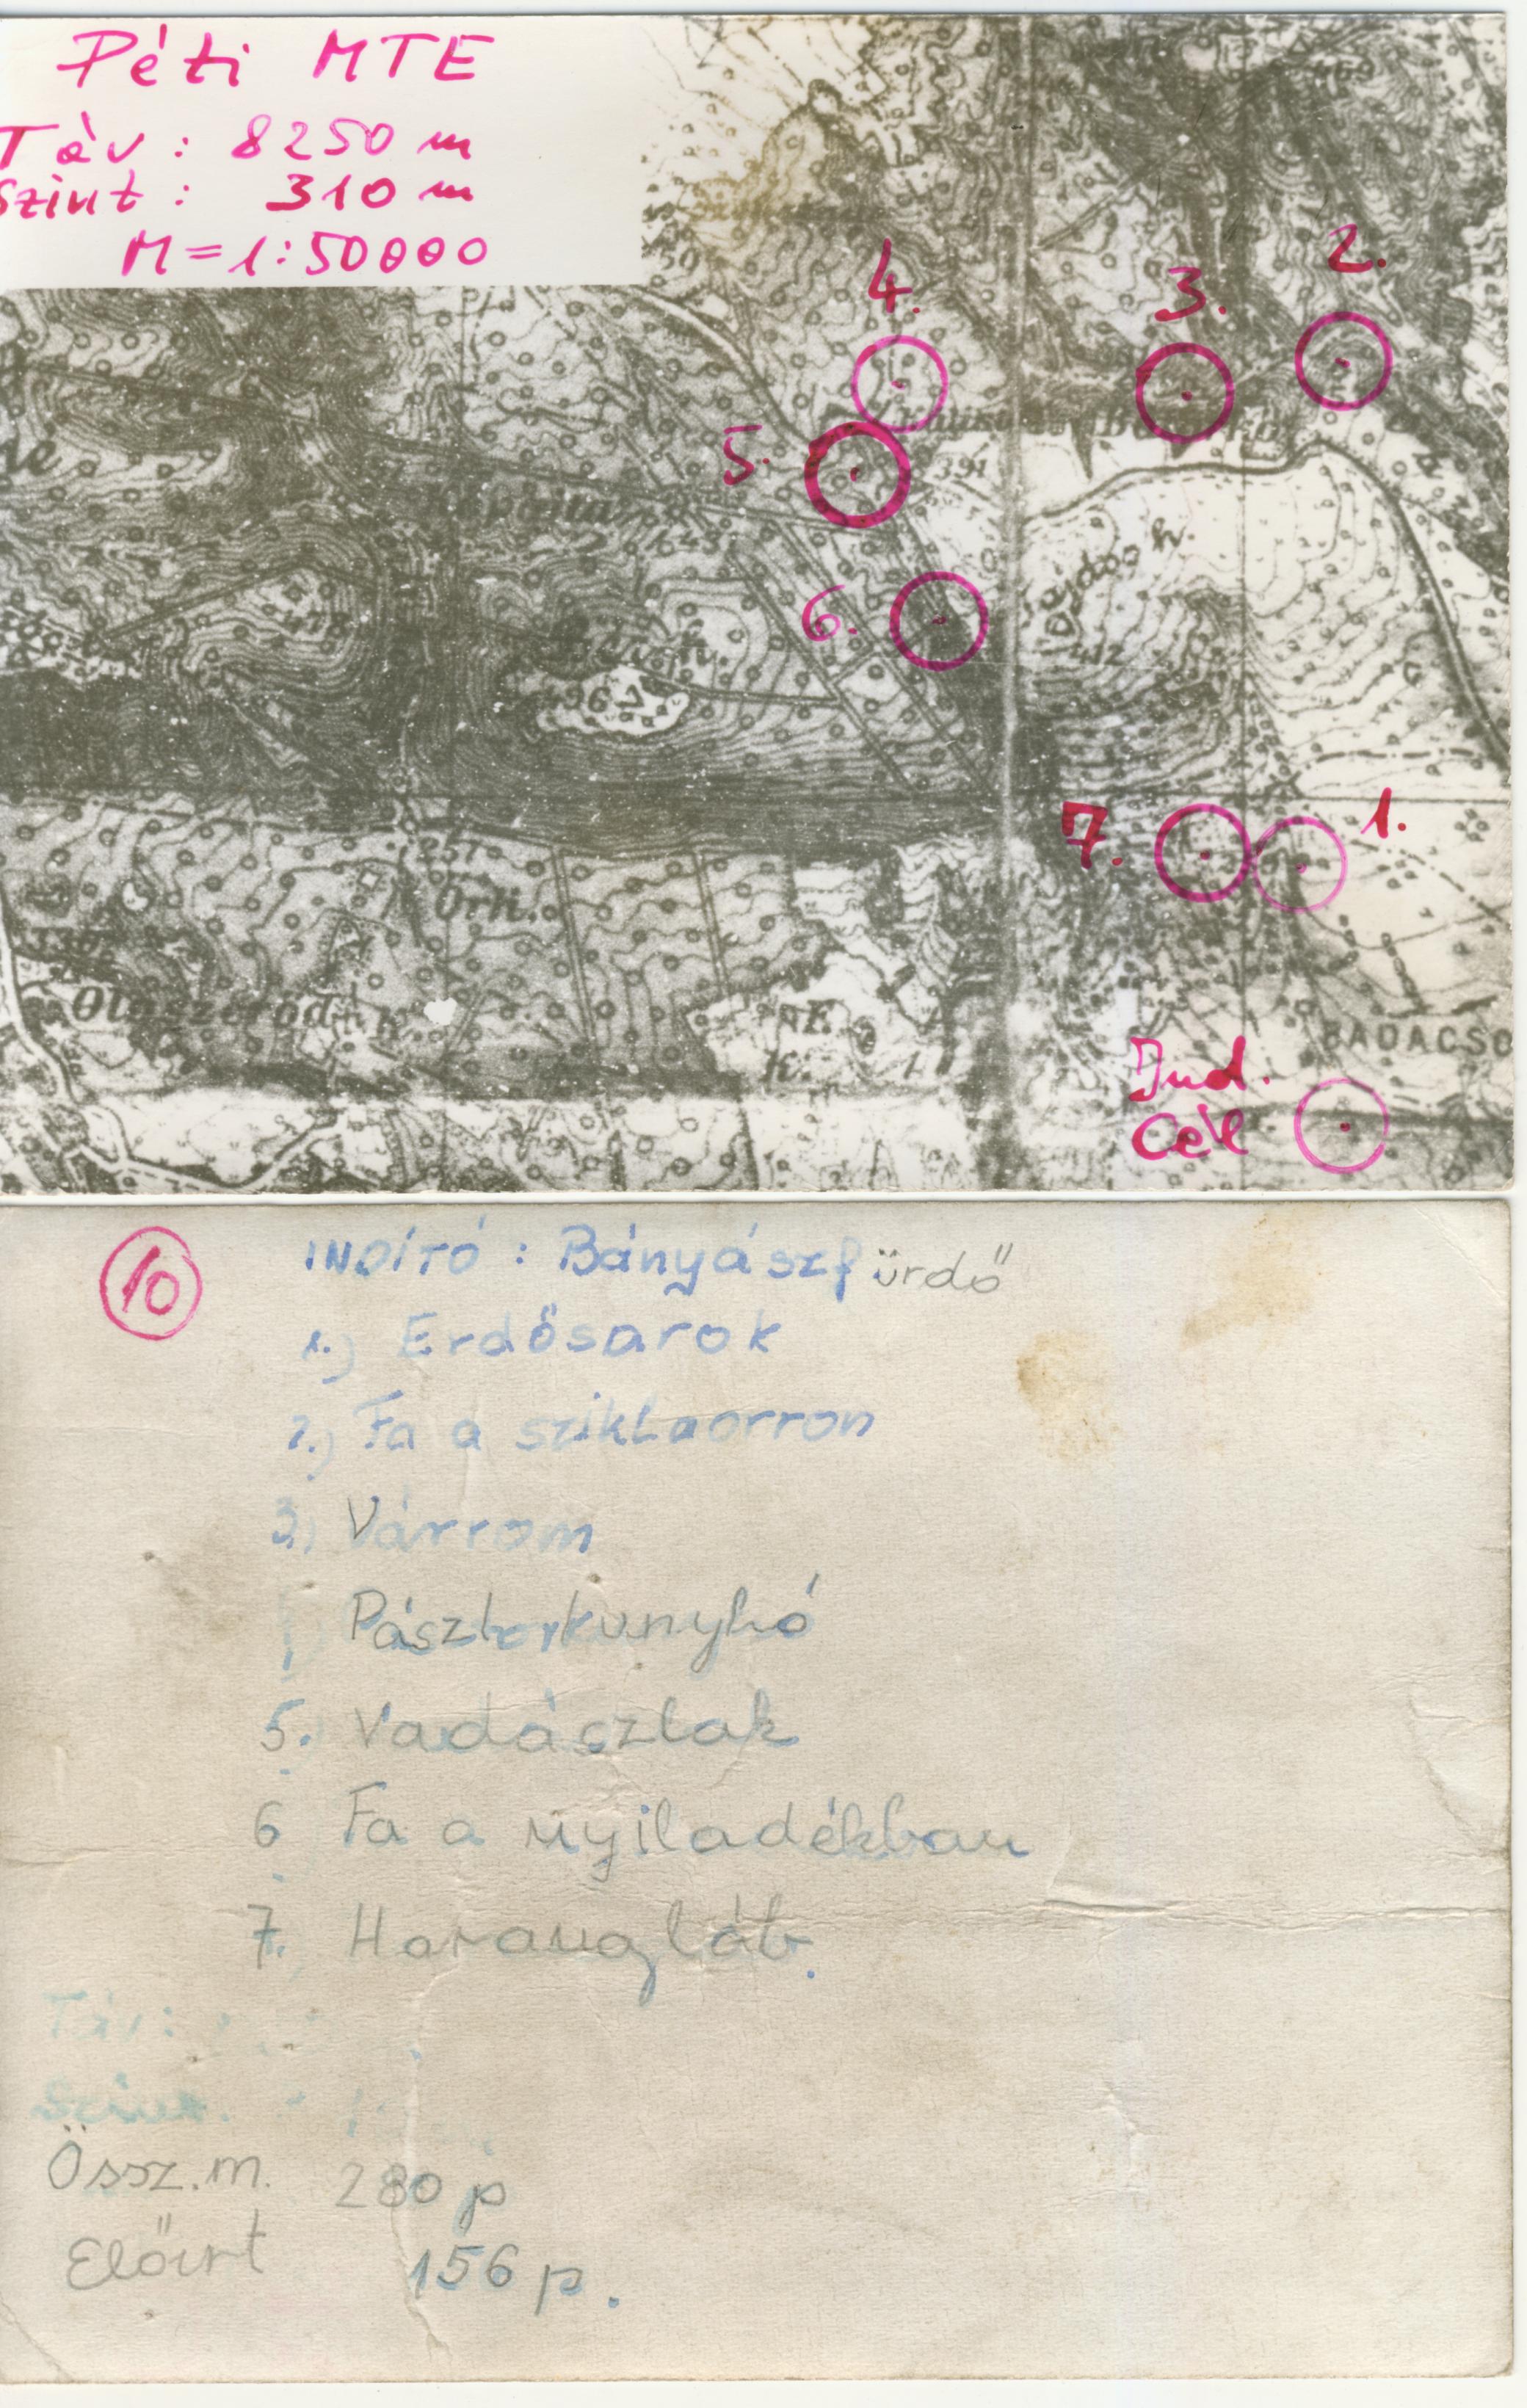 Péti MTE
Táv: 8250 m
Szint: 310 m
M=1:50000
469
4.
3.
2.
5.
391
6.
h.
412
496.7
7.
1.
257
Örh.
BADACSO
Ind.
Cél
10
INDÍTÓ: Bányászfürdő
1.) Erdősarok
2.) Fa a sziklaorron
3.) Várrom
Pásztorkunyhó
5. Vadászlak
6 Fa a nyiladékban
7. Harangláb.
Táv:
Szint.
Össz.m. 280 p
Előirt 156 p.